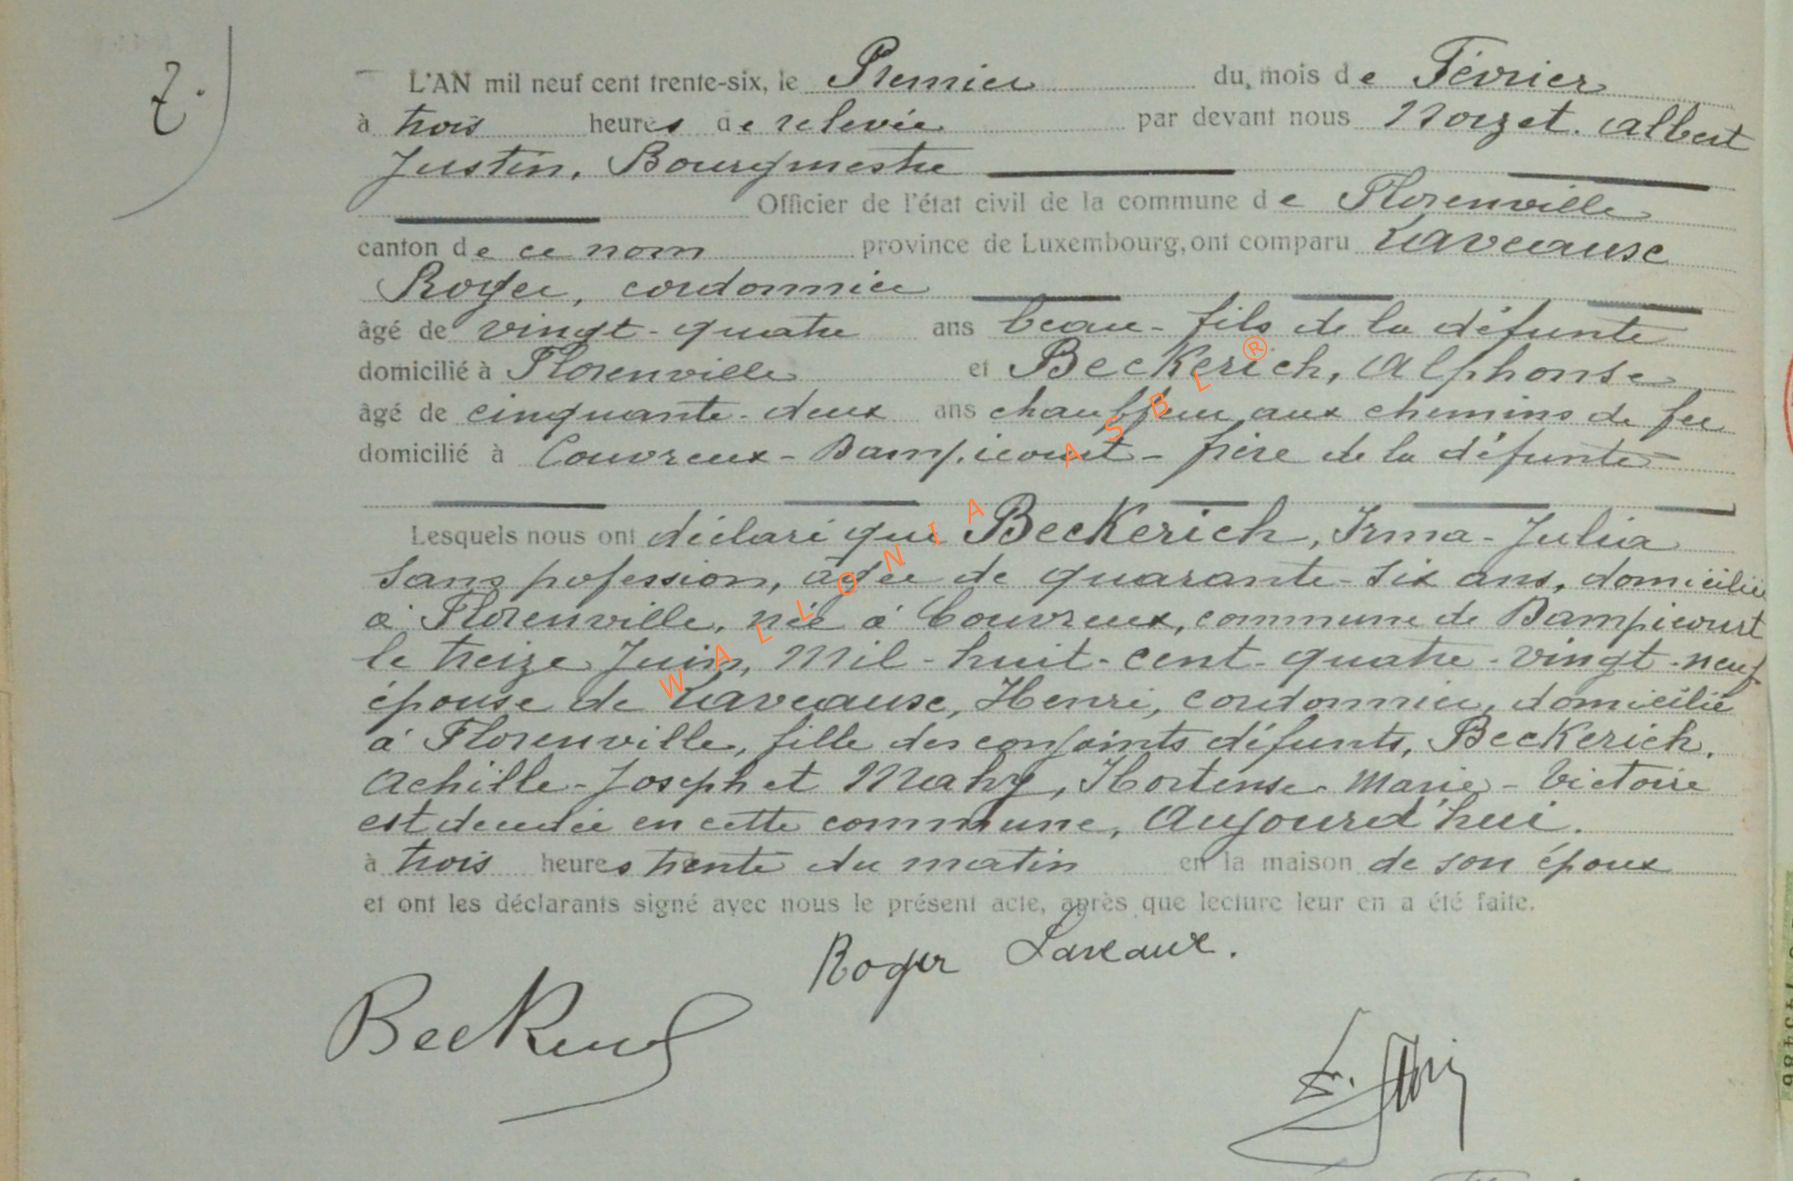 7.
L'AN mil neuf cent trente-six, le Premier du mois de Février
à trois heures de relevée par devant nous Nozet. Albert
Justin, Bourgmestre
Officier de l'état civil de la commune de Florenville
canton de ce nom province de Luxembourg, ont comparu Laveause
Roger, cordonnier
âgé de vingt-quatre ans beau-fils de la défunte
domicilié à Florenville et Beckerich, Alphonse
âgé de cinquante-deux ans chauffeur aux chemins de fer
domicilié à Couvreux-Dampicourt - frère de la défunte
Lesquels nous ont déclaré que Beckerich, Irma-Julia
sans pofession, âgée de quarante-six ans, domiciliée
à Florenville, née à Couvreux, commune de Dampicourt
le treize Juin, mil-huit-cent-quatre-vingt-neuf
épouse de Laveause, Henri, cordonnier, domicilié
à Florenville, fille des conjoints défunts, Beckerich,
Achille-Joseph et Mahy, Hortense-Marie-Victoire
est décédée en cette commune, Aujourd'hui.
à trois heures trente du matin en la maison de son époux
et ont les déclarants signé avec nous le présent acte, après que lecture leur en a été faite.
Roger Laveaux.
WALLONIA ASBL®